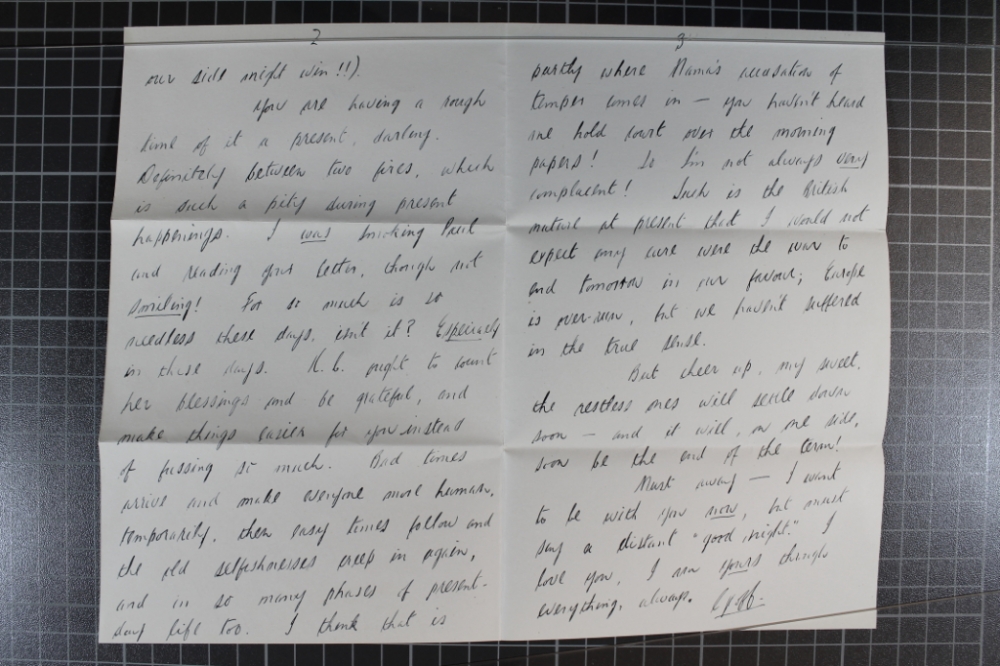 2
our side might win!!).
You are having a rough
time of it a present, darling.
Definitely between two fires, which
is such a pity during present
happenings. I was smoking
and reading your letter, though not
smiling! For so much is so
needless these days, isn't it? Especially
in these days. K.C. ought to count
her blessings and be grateful, and
make things easier for you instead
of fussing so much. Bad times
arrive and make everyone more human,
temporarily, then easy times follow and
the old selfishnesses creep in again,
and in so many phases of present-
day life too. I think that is
3
partly where Mama's accusation of
temper comes in — you haven't heard
me hold court over the morning
papers! So I'm not always very
complacent! Such is the British
nature at present that I would not
expect any cure were the war to
end tomorrow in our favour; Europe
is over-run, but we haven't suffered
in the true sense.
But cheer up, my sweet,
the restless ones will settle down
soon — and it will, on one side,
soon be the end of the term!
Must away — I want
to be with you now, but must
say a distant "good night". I
love you, I am yours through
everything, always.